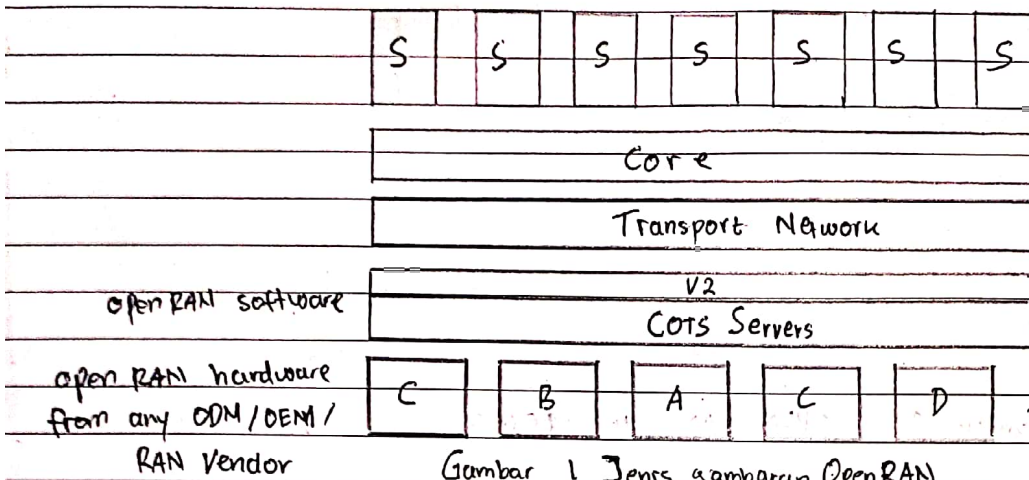 S S S S S S S
Core
Transport Network
V2
open RAN software
COTS Servers
open RAN hardware
C B A C D
from any ODM/OEM/
RAN Vendor
Gambar 1 Jenis gambaran OpenRAN